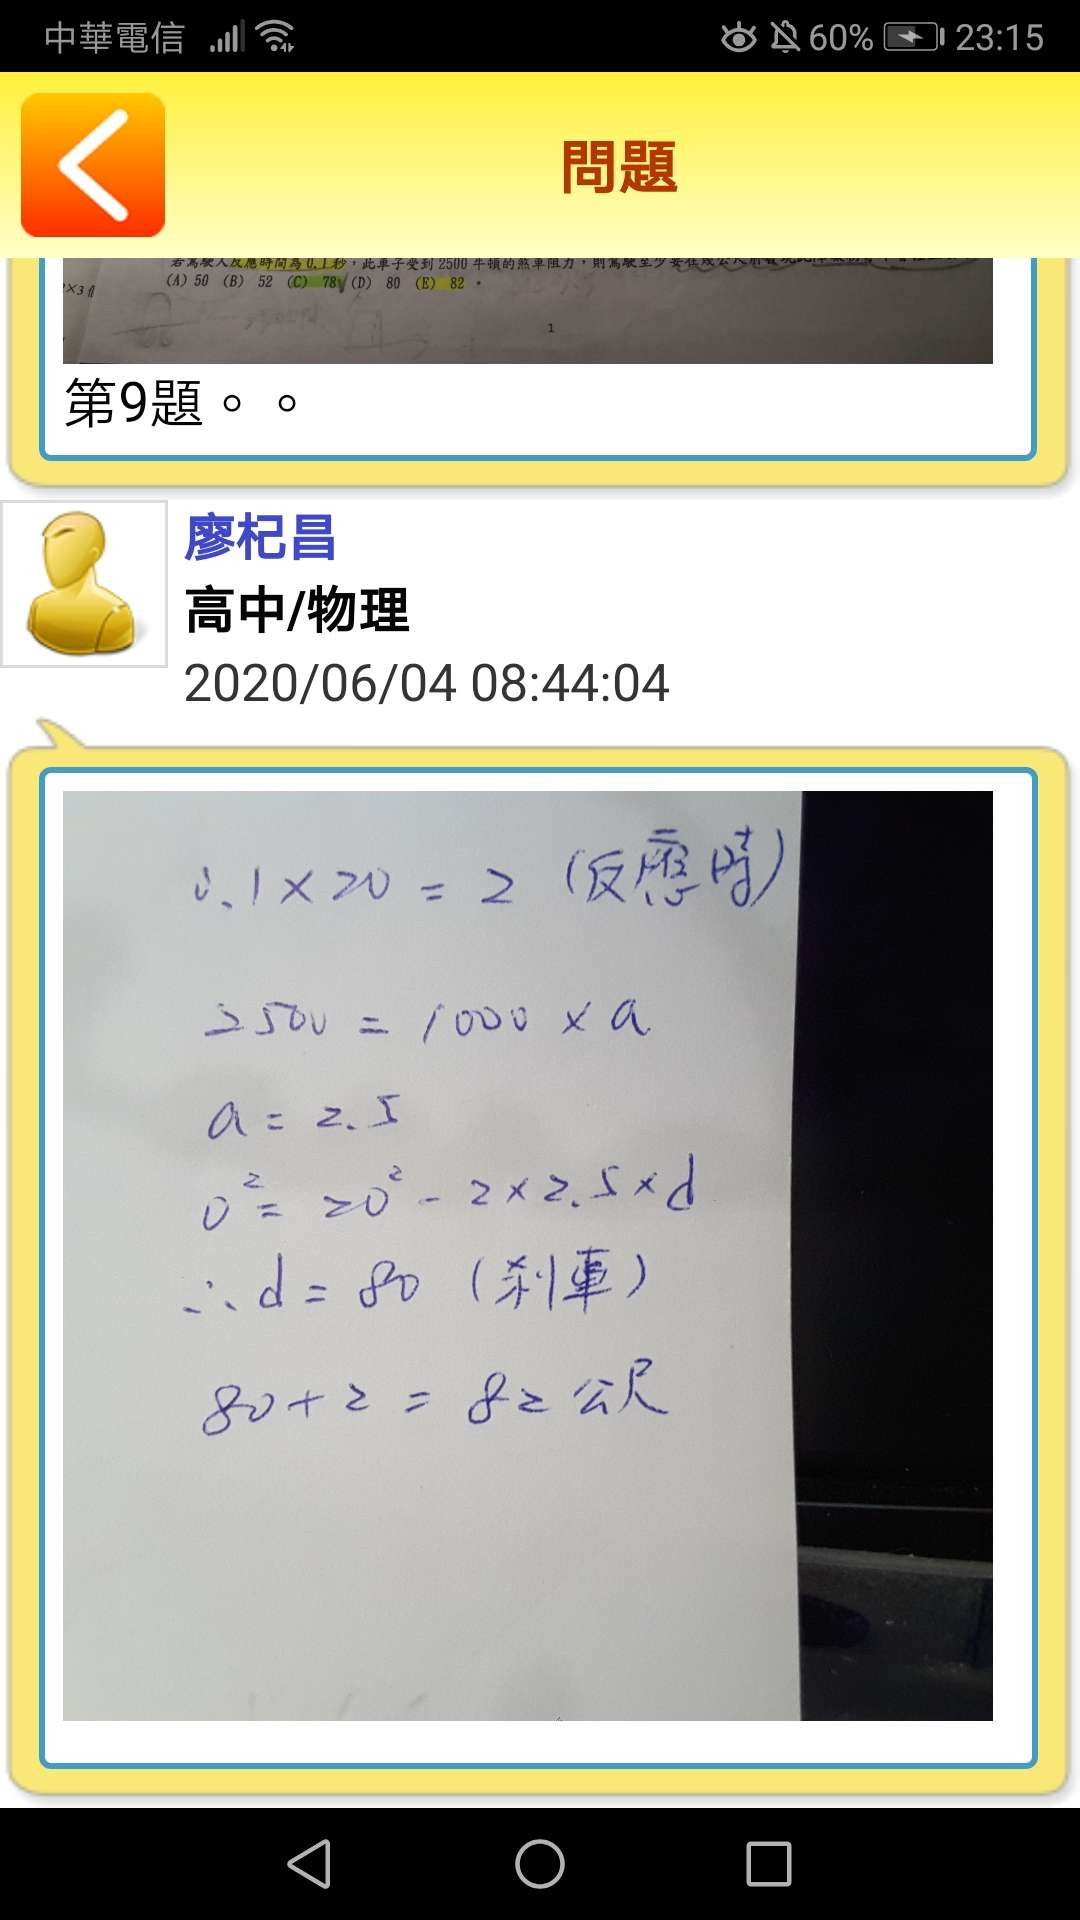 中華電信 60% 23:15
問題
若駕駛人反應時間為0.1秒,此車子受到2500牛頓的煞車阻力,則駕駛至少要在幾公尺前發現
(A) 50 (B) 52 (C) 78 (D) 80 (E) 82。
1
第9題。。
廖杞昌
高中/物理
2020/06/04 08:44:04
0.1×20=2 (反應時)
2500=1000×a
a=2.5
0²=20²-2×2.5×d
∴d=80 (剎車)
80+2=82公尺